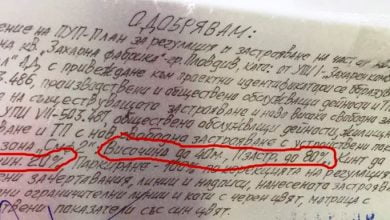 ОДОБРЯВАМ:
ение на ПУП-План за регулация и застрояване на част от
на кв. "Захарна фабрика"-гр. Пловдив, като: от УПИ I-Захарен
АД, с привеждане към проектни идентификатори се образув
503.486, производствени и обществено обслужващи дейности и
на съществуващото застрояване и ново високо свободно
УПИ VII-503.487, обществено обслужващи дейности, жилищн
ване и ТП с ново свободно застрояване с устройствени по
зона височина до 40м. Пзастр. до 80%, инт до
мин. 20%, Паркиране - 100%, корекцията на регулация
ени зачертавания, линии и надписи, нанесената застроя
ни ограничителни линии и коти с черен цвят, матрица с
показатели със син цвят.